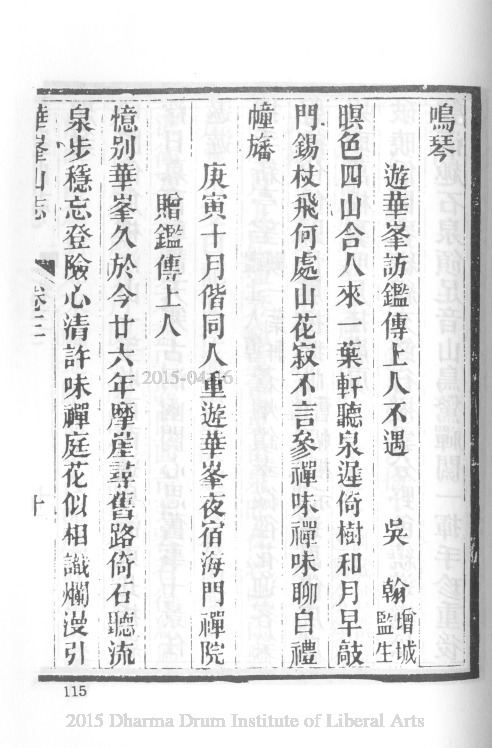 鳴琴
遊華峯訪鑑傳上人不遇 吳翰 增城監生
暝色四山合人來一葉軒聽泉遲倚樹和月早敲
門錫杖飛何處山花寂不言參禪味禪味聊自禮
幢旛
庚寅十月偕同人重遊華峯夜宿海門禪院
贈鑑傳上人
憶别華峯久於今廿六年摩崖尋舊路倚石聽流
泉步穩忘登險心清許味禪庭花似相識爛漫引
華峯山志 卷三 十
2015-04-06
115
2015 Dharma Drum Institute of Liberal Arts